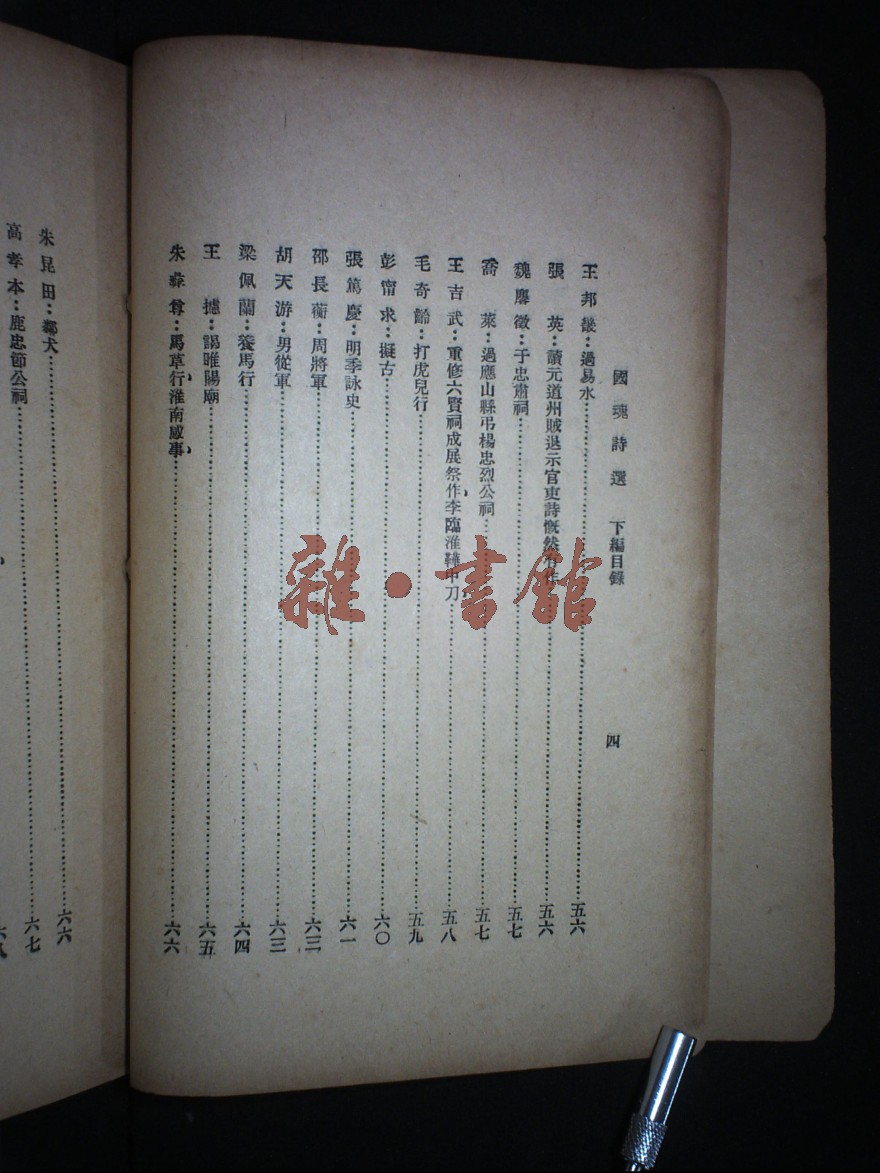 國魂詩選 下編目錄 四
王邦畿：過易水 五六
張 英：讀元道州賊退示官吏詩慨然有作 五六
魏麐徵：于忠肅祠 五七
喬 萊：過應山縣弔楊忠烈公祠 五七
王吉武：重修六賢祠成展祭作、李臨淮鞾中刀 五八
毛奇齡：打虎兒行 五九
彭甯求：擬古 六〇
張篤慶：明季詠史 六一
邵長蘅：周將軍 六三
胡天游：男從軍 六三
梁佩蘭：養馬行 六四
王 攄：謁睢陽廟 六五
朱彝尊：馬草行、淮南感事、 六六
朱昆田：鄰犬 六六
高孝本：鹿忠節公祠 六七
六八
雜·書館